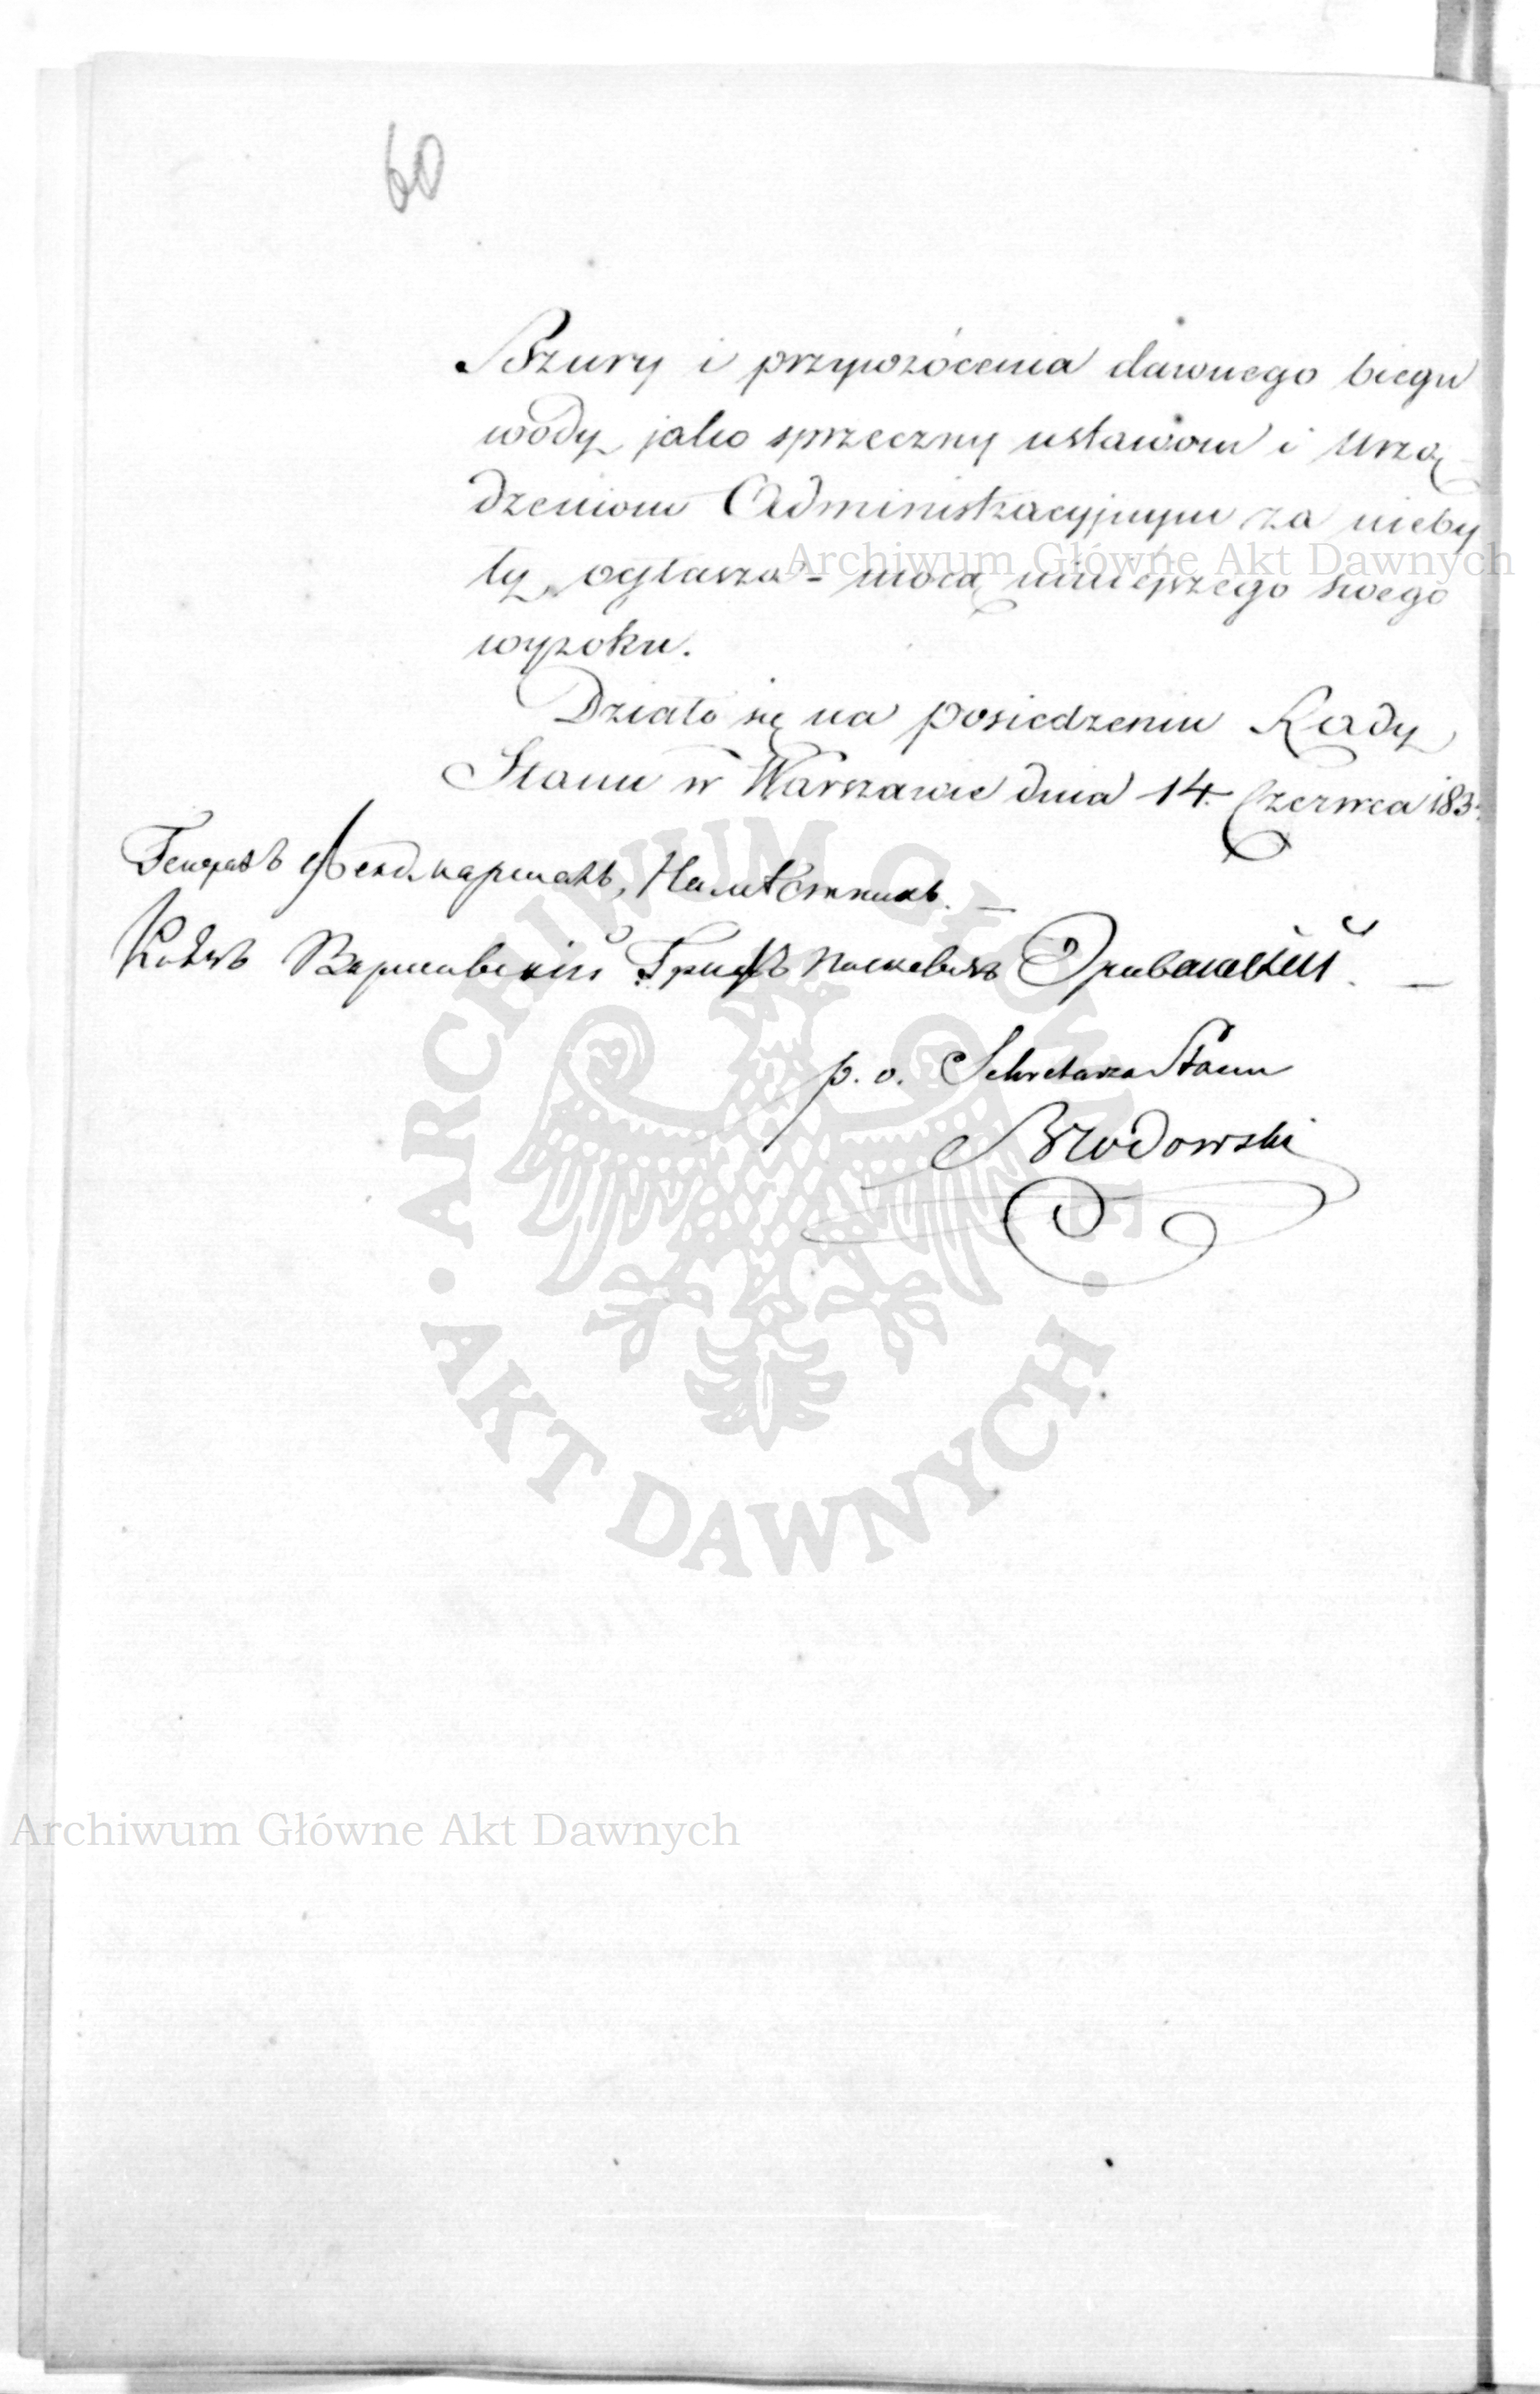 60
Bzury i przywrócenia dawnego biegu
wody, jako sprzeczny ustawom i urzą-
dzeniom Administracyjnym za nieby
ły ogłasza - mocą niniejszego swego
wyroku.
Działo się na posiedzeniu Rady
Stanu w Warszawie dnia 14. Czerwca 183
Генералъ Фельдмаршалъ, Намѣстникъ. —
Князь Варшавскій Графъ Паскевичъ Эриванскій. —
p. o. Sekretarza Stanu
Brodowski
Archiwum Główne Akt Dawnych
ARCHIWUM GŁÓWNE · AKT DAWNYCH ·
Archiwum Główne Akt Dawnych